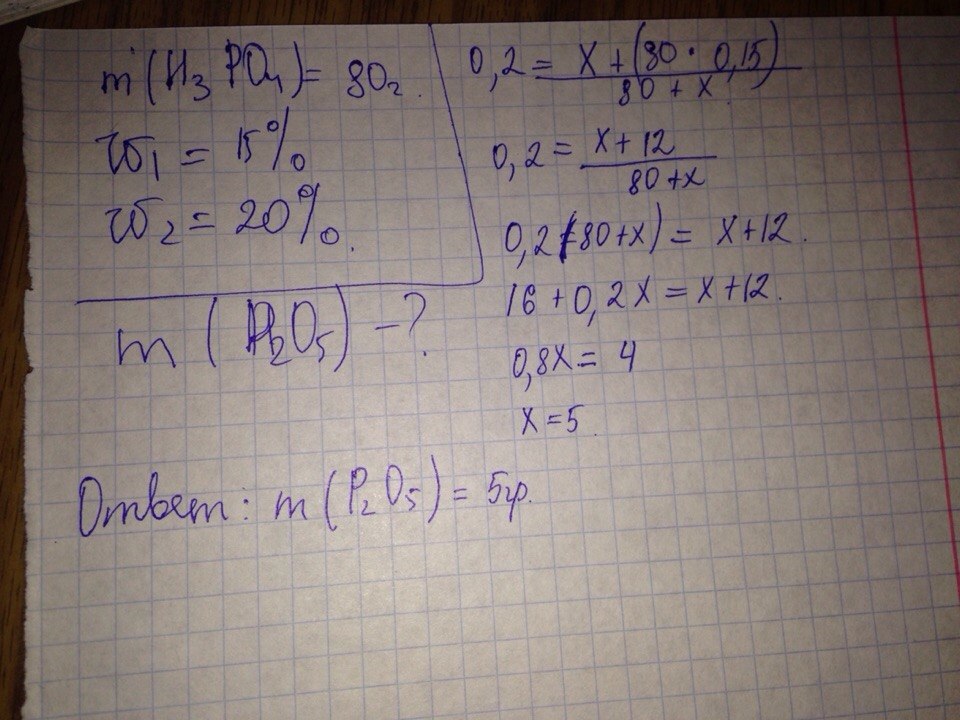 m(H₃PO₄) = 80г.
ω₁ = 15%
ω₂ = 20%.
m(P₂O₅) - ?
0,2 = x + (80 · 0,15) / 80 + x
0,2 = x + 12 / 80 + x
0,2(80+x) = x+12.
16 + 0,2x = x + 12.
0,8x = 4
x = 5.
Ответ: m(P₂O₅) = 5гр.